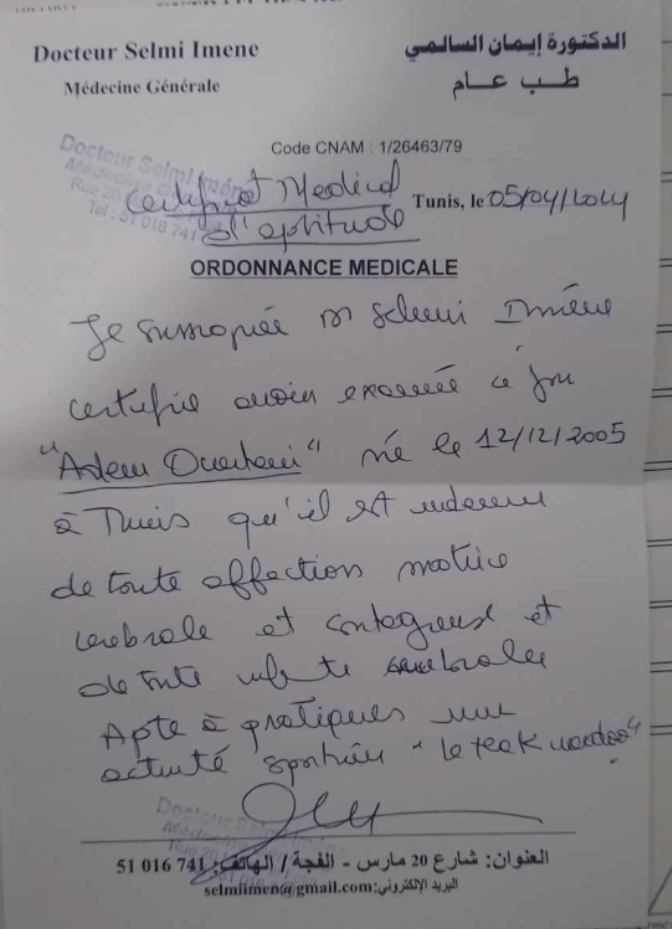 Docteur Selmi Imene
Médecine Générale
الدكتورة إيمان السالمي
طـب عـام
Code CNAM : 1/26463/79
Docteur Selmi Iméne
Rue 20
Tel : 51 016 741
Certificat Medical
d'aptitude
Tunis, le 05/04/2024
ORDONNANCE MEDICALE
Je Selmi Iméne
certifie avoir examiné ce jour
né le 12/12/2005
à Tunis qu'il est indemne
de toute affection motrice
cerebrale et contagieuse et
de toute
Apte à pratiquer une
activité sportive
Docteur Selmi
العنوان: شارع 20 مارس - الفجة / الهاتف: 51 016 741
البريد الإلكتروني: selmiimen@gmail.com